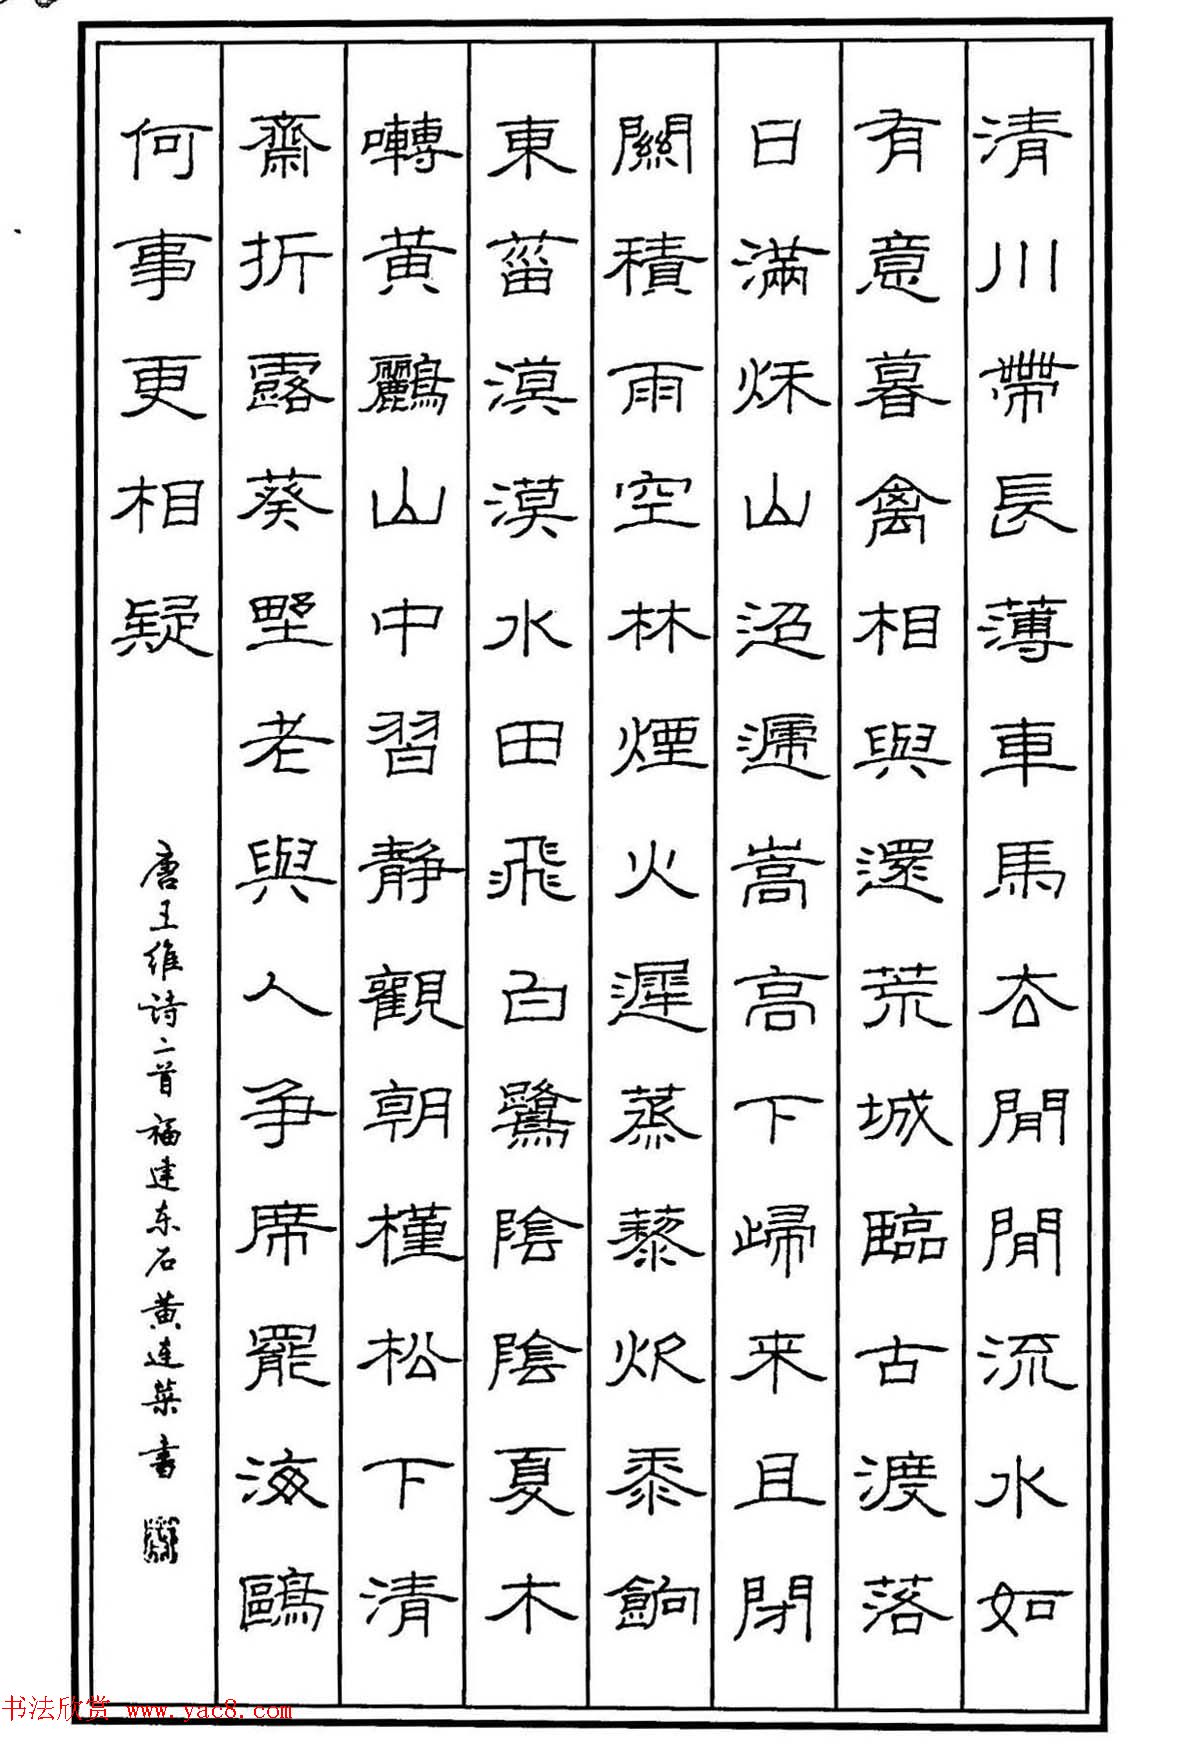 清川帶長薄車馬去閒閒流水如
有意暮禽相與還荒城臨古渡落
日滿秌山迢遞嵩高下歸来且閉
關積雨空林煙火遲蒸藜炊黍餉
東菑漠漠水田飛白鷺陰陰夏木
囀黄鸝山中習静觀朝槿松下清
齋折露葵野老與人争席罷海鷗
何事更相疑
唐王维诗二首福建东石黄连書
书法欣赏 www.yac8.com